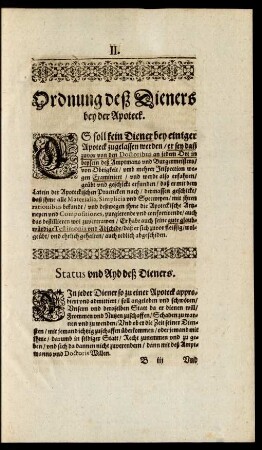 II.
Ordnung deß Dieners
bey der Apoteck.
ES soll kein Diener bey einiger
Apoteck zugelassen werden / er sey dañ
zuvor von den Doctoribus an jedem Ort in
beysein deß Amptmans und Burgermeisters /
von Obrigkeit / und mehrer Inspection we-
gen Examiniert / und werde also erfahren /
geübt und geschickt erfunden / daß er mit dem
Latein der Apoteckischen Practicken nach / dermassen geschickt /
daß ihme alle Materialia, Simplicia und Specereyen / mit ihren
rationibus bekandt / und deßwegen ihme die Apoteckische Artz-
neyen und Compositiones, zurgierende und conservierende / auch
das destillieren wol zuvertrawen / Er habe auch seine gute glaub-
würdige Testimonia und Abschide / daß er sich zuvor fleissig / wol-
geübt / und ehrlich gehalten / auch redlich abgescheiden.
Status vnd Ayd deß Dieners.
EIn jeder Diener so zu einer Apoteck appro-
biert und admittiert / soll angeloben und schwören /
Unsern und derselben Statt da er dienen will /
Frommen und Nutzen zuschaffen / Schaden zu war-
nen und zu wenden / Und ob er die Zeit seiner Dien-
sten / mit jemand ichtzig zuschaffen überkommen / oder jemand mit
ihme / darumb in selbiger Statt / Recht zunemmen und zu ge-
ben / und sich da dannen nicht zuverenden / dann mit deß Ampt-
manns und Doctoris Willen.
B iij Vnd